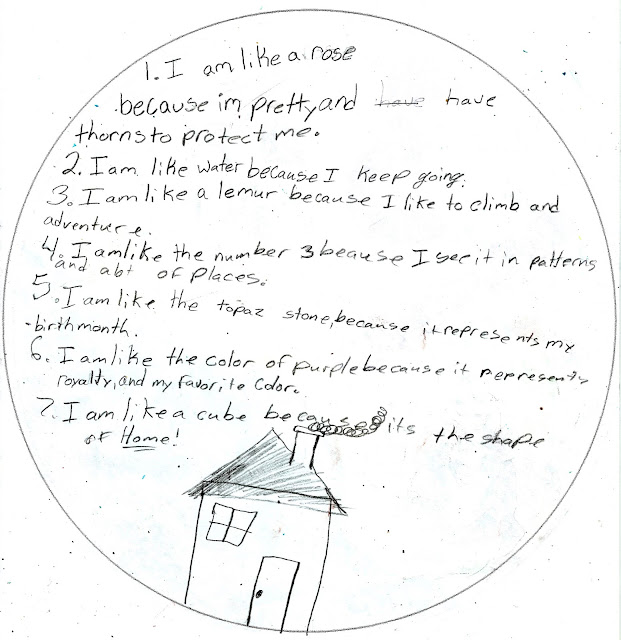 1. I am like a rose
because im pretty and have have
thorns to protect me.
2. I am like water because I keep going.
3. I am like a lemur because I like to climb and
adventure.
4. I am like the number 3 beause I see it in patterns
and abt of places.
5. I am like the topaz stone, because it represents my
birthmonth.
6. I am like the color of purple because it represents
royalty, and my favorite color.
7. I am like a cube because its the shape
of Home!